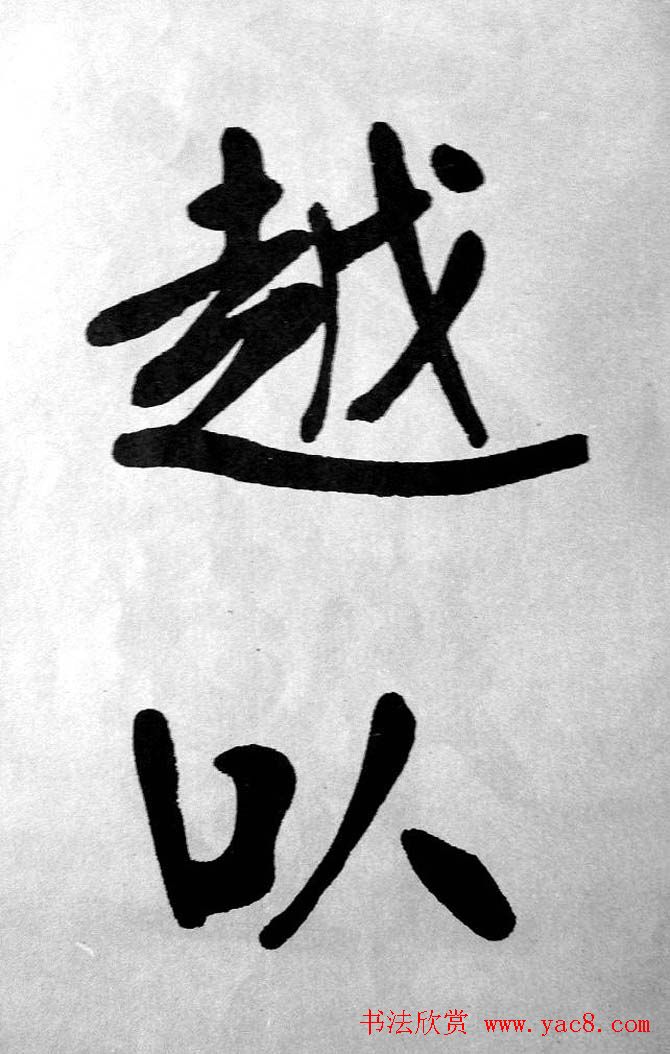 越
以
书法欣赏 www.yac8.com